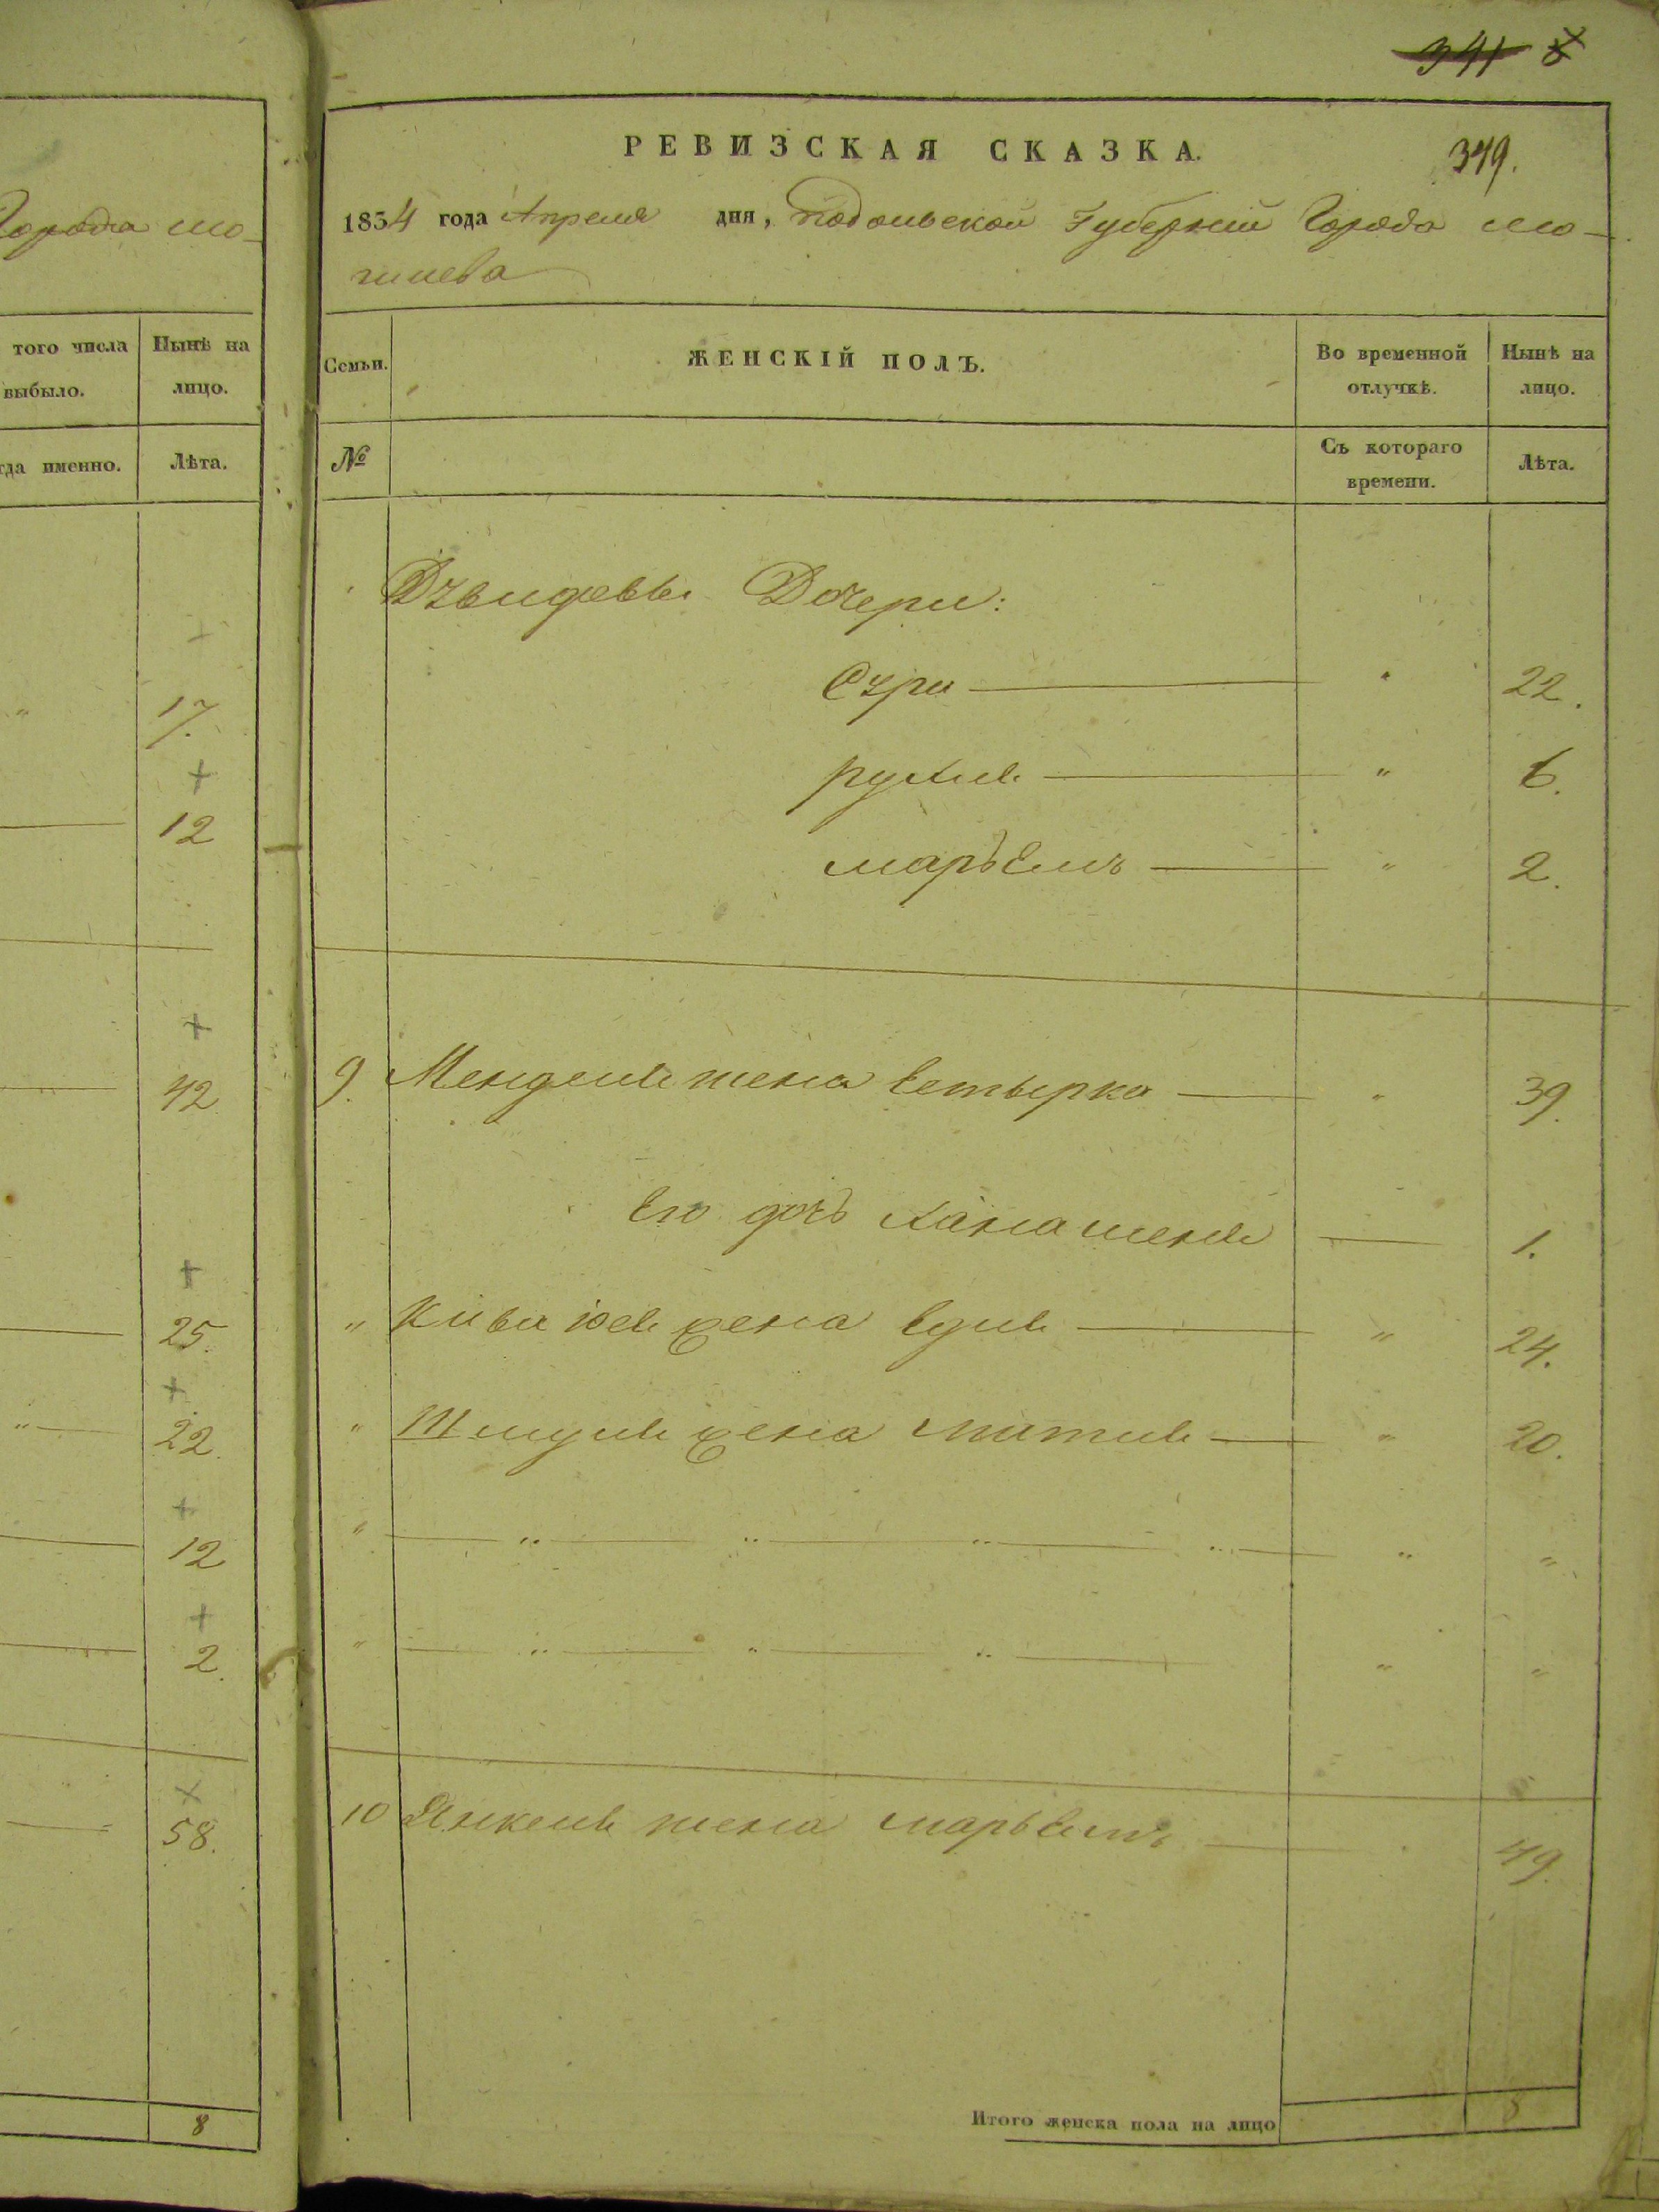 Города мо-
того числа
выбыло.
Нынѣ на
лицо.
гда именно.
Лѣта.
17.
12
42
25.
22.
12
2.
58.
8
341 8
РЕВИЗСКАЯ СКАЗКА.
349.
1854 года Апреля дня, Подольской Губерніи Города мо-
гилева
Семьи.
ЖЕНСКІЙ ПОЛЪ.
Во временной
отлучкѣ.
Нынѣ на
лицо.
№
Съ котораго
времени.
Лѣта.
Дочери:
Сура — " 22.
рухля — " 6.
марьемъ — " 2.
9. Менделя жена — " 39.
Его дочь хана — 1.
" жена — " 24.
" жена — " 20.
" — " — " — " — " "
" — " — " — " — " "
10 Янкеля жена марьемъ — 49.
Итого женска пола на лицо 8